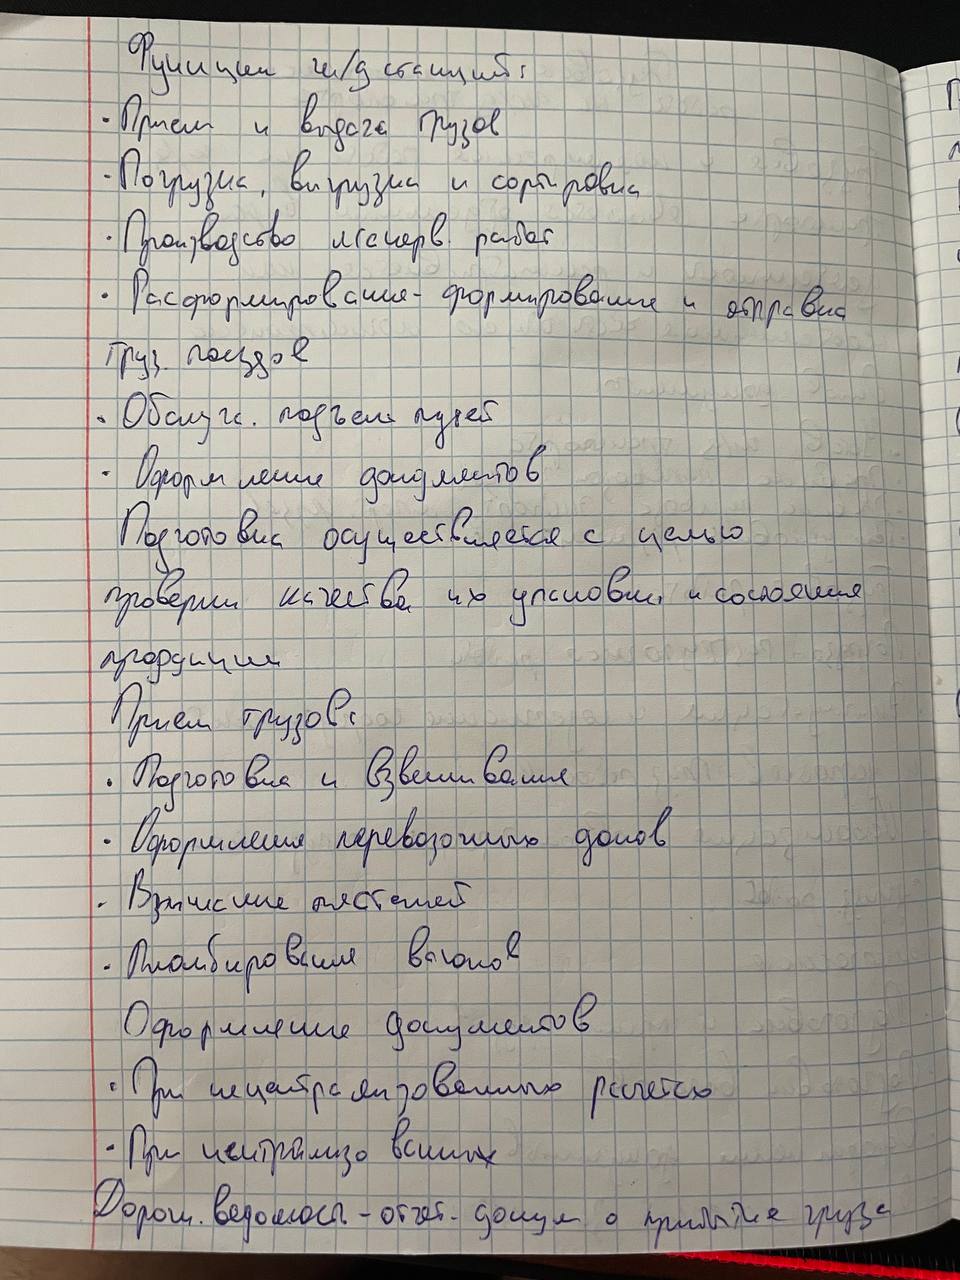 Функции ж/д станций:
· Прием и выдача грузов
· Погрузка, выгрузка и сортировка
· Производство маневр. работ
· Расформирование-формирование и отправка
груз. поездов
· Обслуж. подъезд. путей
· Оформление документов
Подготовка осуществляется с целью
проверки качества их упаковки и состояния
продукции
Прием грузов:
· Подготовка и взвешивание
· Оформления перевозочных доков
· Взыскание платежей
· Пломбирование вагонов
Оформление документов
· При нецентрализованных расчетах
· При централизованных
Дорож. ведомость - отчет. докум о прибытие груза